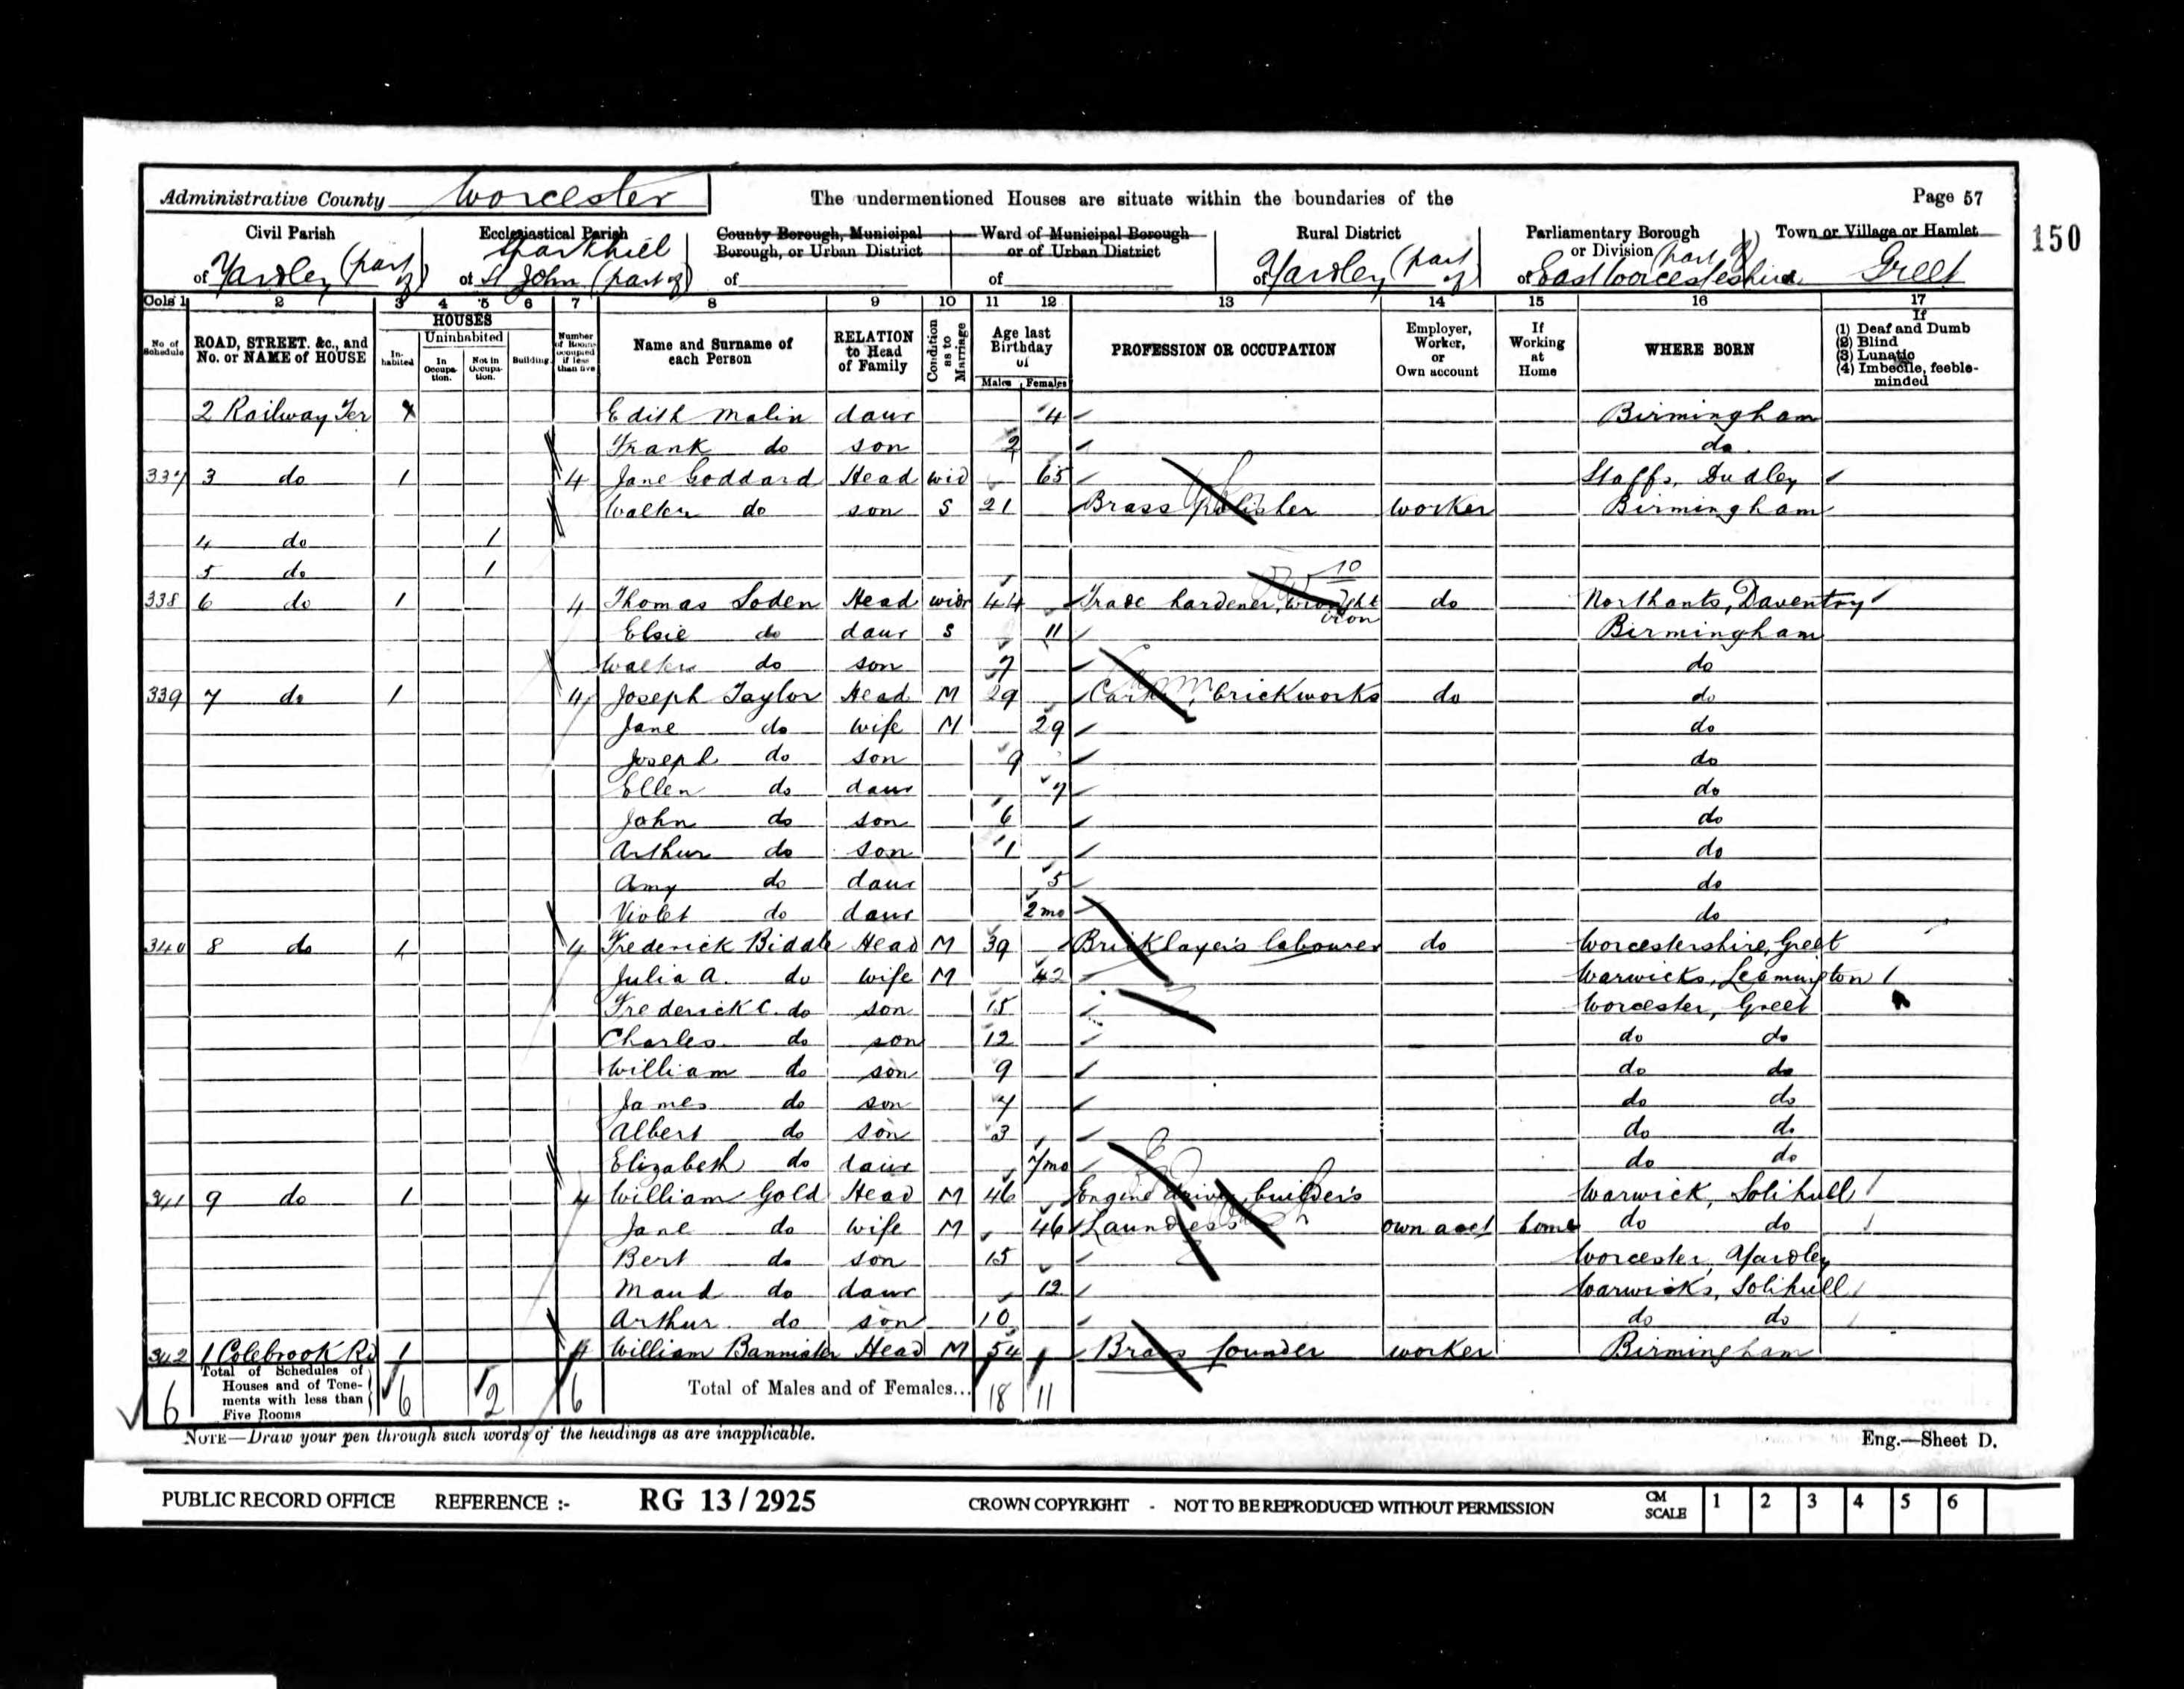 Administrative County Worcester The undermentioned Houses are situate within the boundaries of the Page 57
150
Civil Parish Ecclesiastical Parish County Borough, Municipal Borough, or Urban District Ward of Municipal Borough or of Urban District Rural District Parliamentary Borough or Division Town or Village or Hamlet
of Yardley (part of) of Sparkhill St John (part of) of of of Yardley (part of) of East Worcestershire (part of) Greet
Cols 1 2 3 4 5 6 7 8 9 10 11 12 13 14 15 16 17
No. of Schedule ROAD, STREET, &c., and No. or NAME of HOUSE HOUSES Inhabited Uninhabited In Occupation. Not in Occupation. Building Number of Rooms occupied if less than five Name and Surname of each Person RELATION to Head of Family Condition as to Marriage Age last Birthday of Males Females PROFESSION OR OCCUPATION Employer, Worker, or Own account If Working at Home WHERE BORN If (1) Deaf and Dumb (2) Blind (3) Lunatic (4) Imbecile, feeble-minded
2 Railway Ter X Edith Malin daur 4 Birmingham
Frank do son 2 do
337 3 do 1 4 Jane Goddard Head wid 65 Staffs, Dudley
Walter do son S 21 Brass polisher worker Birmingham
4 do 1
5 do 1
10
338 6 do 1 4 Thomas Soden Head widr 44 hardener, wrought iron do Northants, Daventry
Elsie do daur S 11 Birmingham
Walter do son 7 do
339 7 do 1 4 Joseph Taylor Head M 29 Carter, brickworks do do
Jane do wife M 29 do
Joseph do son 9 do
Ellen do daur 7 do
John do son 6 do
Arthur do son 1 do
Amy do daur 5 do
Violet do daur 2 mo do
340 8 do 1 4 Frederick Biddle Head M 39 Bricklayer's labourer do Worcestershire, Greet
Julia A. do wife M 42 Warwicks, Leamington
Frederick C. do son 15 Worcester, Greet
Charles do son 12 do do
William do son 9 do do
James do son 7 do do
Albert do son 3 do do
Elizabeth do daur 7 mo do do
341 9 do 1 4 William Gold Head M 46 Engine driver, builder's Warwick, Solihull
Jane do wife M 46 Laundress own acct home do do
Bert do son 15 Worcester, Yardley
Maud do daur 12 Warwicks, Solihull
Arthur do son 10 do do
342 1 Colebrook Rd 1 4 William Bannister Head M 54 Brass founder worker Birmingham
6 Total of Schedules of Houses and of Tenements with less than Five Rooms 6 2 6 Total of Males and of Females... 18 11
NOTE—Draw your pen through such words of the headings as are inapplicable. Eng.—Sheet D.
PUBLIC RECORD OFFICE REFERENCE :- RG 13/2925 CROWN COPYRIGHT - NOT TO BE REPRODUCED WITHOUT PERMISSION CM SCALE 1 2 3 4 5 6